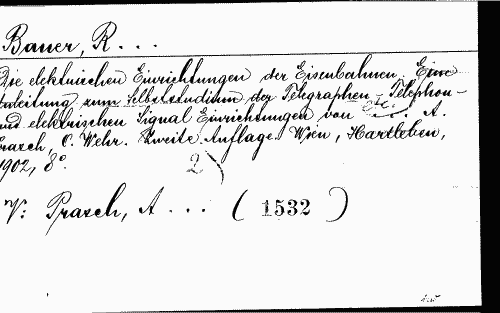 Bauer, R...
Die elektrischen Einrichtungen der Eisenbahnen. Eine
Anleitung zum Selbststudium der Telegraphen-Telephon-
und elektrischen Signal Einrichtungen von etc. A.
Prasch, C. Wehr. Zweite Auflage. Wien, Hartleben,
1902, 8°.
2
V: Prasch, A... (1532)